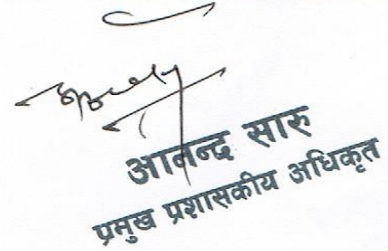 आनन्द सारु
प्रमुख प्रशासकीय अधिकृत